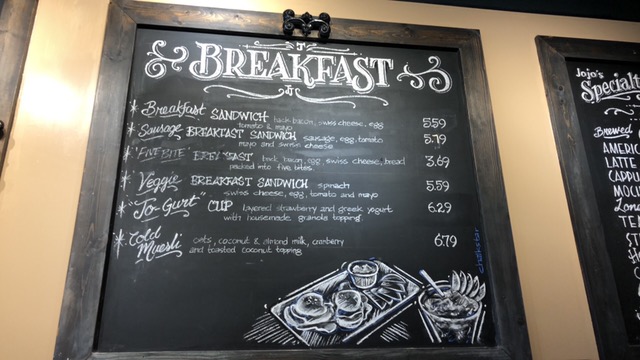 BREAKFAST
Breakfast SANDWICH back bacon, swiss cheese, egg 5.59
tomato & mayo
Sausage BREAKFAST SANDWICH sausage, egg, tomato 5.79
mayo and swiss cheese
"FIVE BITE" BREAKFAST back bacon, egg, swiss cheese, bread 3.69
packed into five bites
Veggie BREAKFAST SANDWICH spinach 5.59
swiss cheese, egg, tomato and mayo
"Jo-Gurt" CUP layered strawberry and greek yogurt 6.29
with housemade granola topping
Cold Muesli oats, coconut & almond milk, cranberry 6.79
and toasted coconut topping
chalkster
Jojo's
Brewed
LATTE
TE